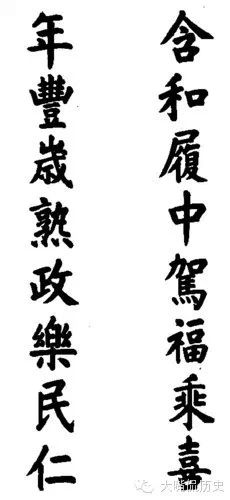 含和履中駕福乘喜
年豐歲熟政樂民仁
大嘴侃历史